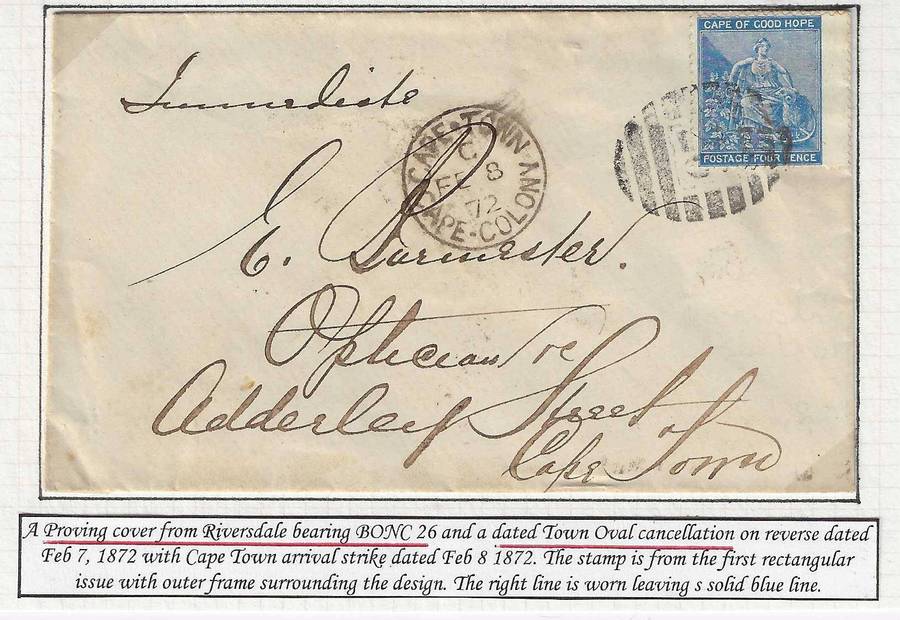 CAPE OF GOOD HOPE
POSTAGE FOUR PENCE
Immediate
CAPE·TOWN
C
FE 8
72
CAPE-COLONY
E. Burmester.
Optician &c
Adderley Street
Cape Town
A Proving cover from Riversdale bearing BONC 26 and a dated Town Oval cancellation on reverse dated
Feb 7, 1872 with Cape Town arrival strike dated Feb 8 1872. The stamp is from the first rectangular
issue with outer frame surrounding the design. The right line is worn leaving s solid blue line.